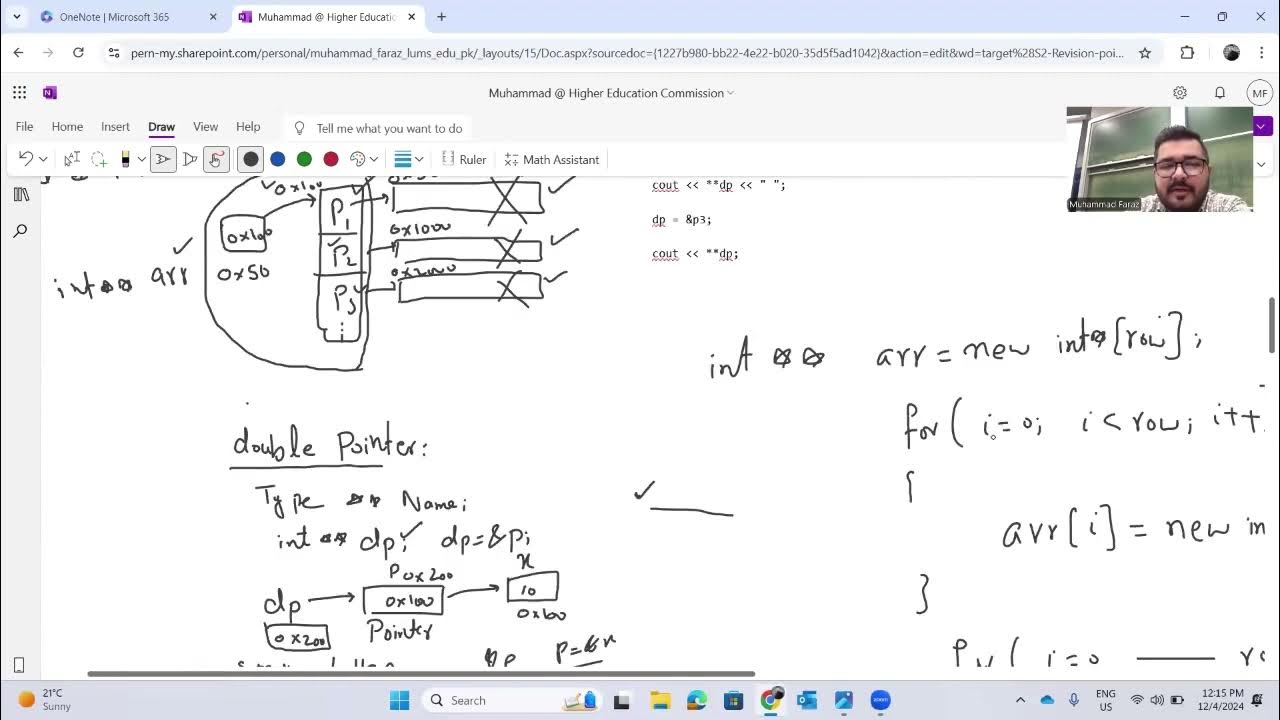 OneNote | Microsoft 365
Muhammad @ Higher Educatio
pern-my.sharepoint.com/personal/muhammad_faraz_lums_edu_pk/_layouts/15/Doc.aspx?sourcedoc={1227b980-bb22-4e22-b020-35d5f5ad1042}&action=edit&wd=target%28S2-Revision-poi...
Muhammad @ Higher Education Commission
MF
File Home Insert Draw View Help Tell me what you want to do
Ruler Math Assistant
Muhammad Faraz
cout << **dp << " ";
dp = &p3;
cout << **dp;
0x100
P1
0x100
0x1000
P2
int ** arr 0x50
0x2000
P3
int ** arr = new int*[row];
for( i=0; i<row; i++
{
arr[i] = new in
}
i=0
double Pointer:
Type ** Name;
int ** dp; dp=&p;
x
P 0x200
dp 0x100 10
0x100
0x200 Pointer
P=&x
21°C
Sunny
Search
zoom
ENG
US
12:15 PM
12/4/2024